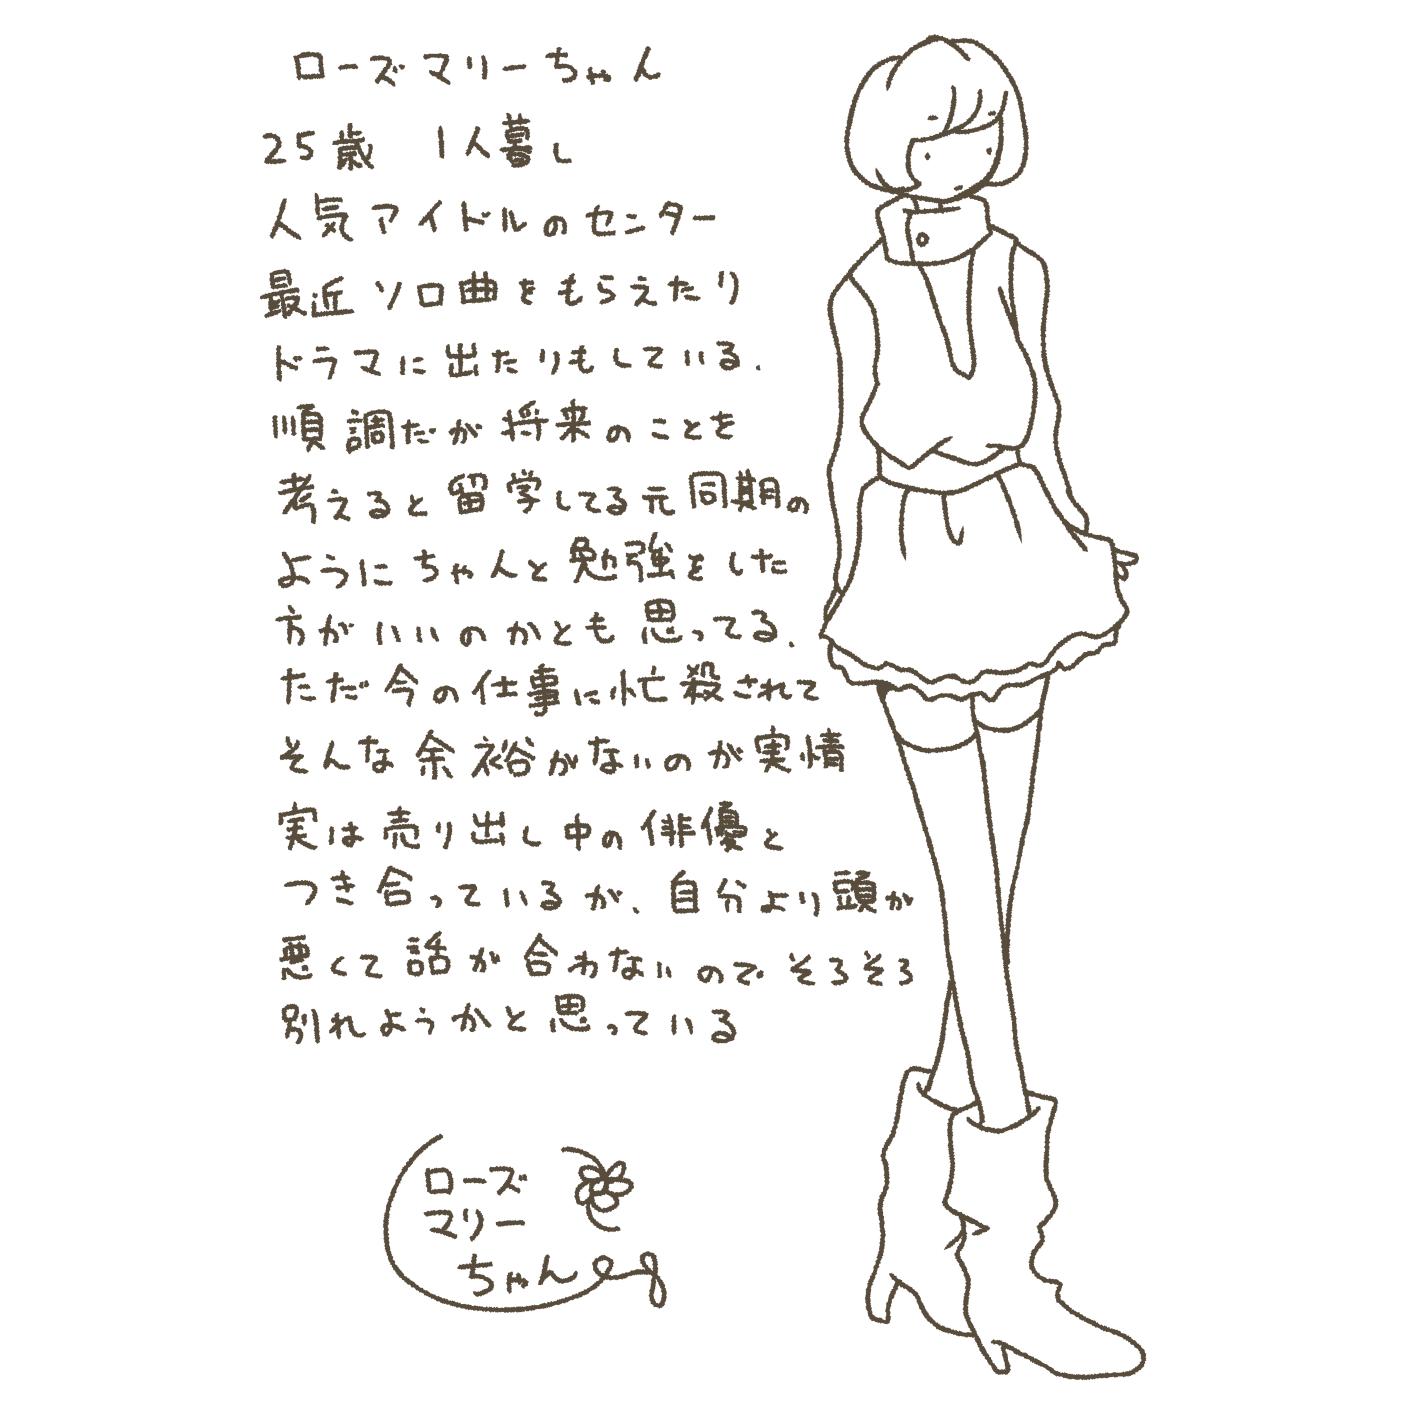 ローズマリーちゃん
25歳 1人暮し
人気アイドルのセンター
最近ソロ曲をもらえたり
ドラマに出たりもしている.
順調だが将来のことを
考えると留学してる元同期の
ようにちゃんと勉強をした
方がいいのかとも思ってる.
ただ今の仕事に忙殺されて
そんな余裕がないのが実情
実は売り出し中の俳優と
つき合っているが、自分より頭が
悪くて話が合わないのでそろそろ
別れようかと思っている
ローズ
マリー
ちゃん